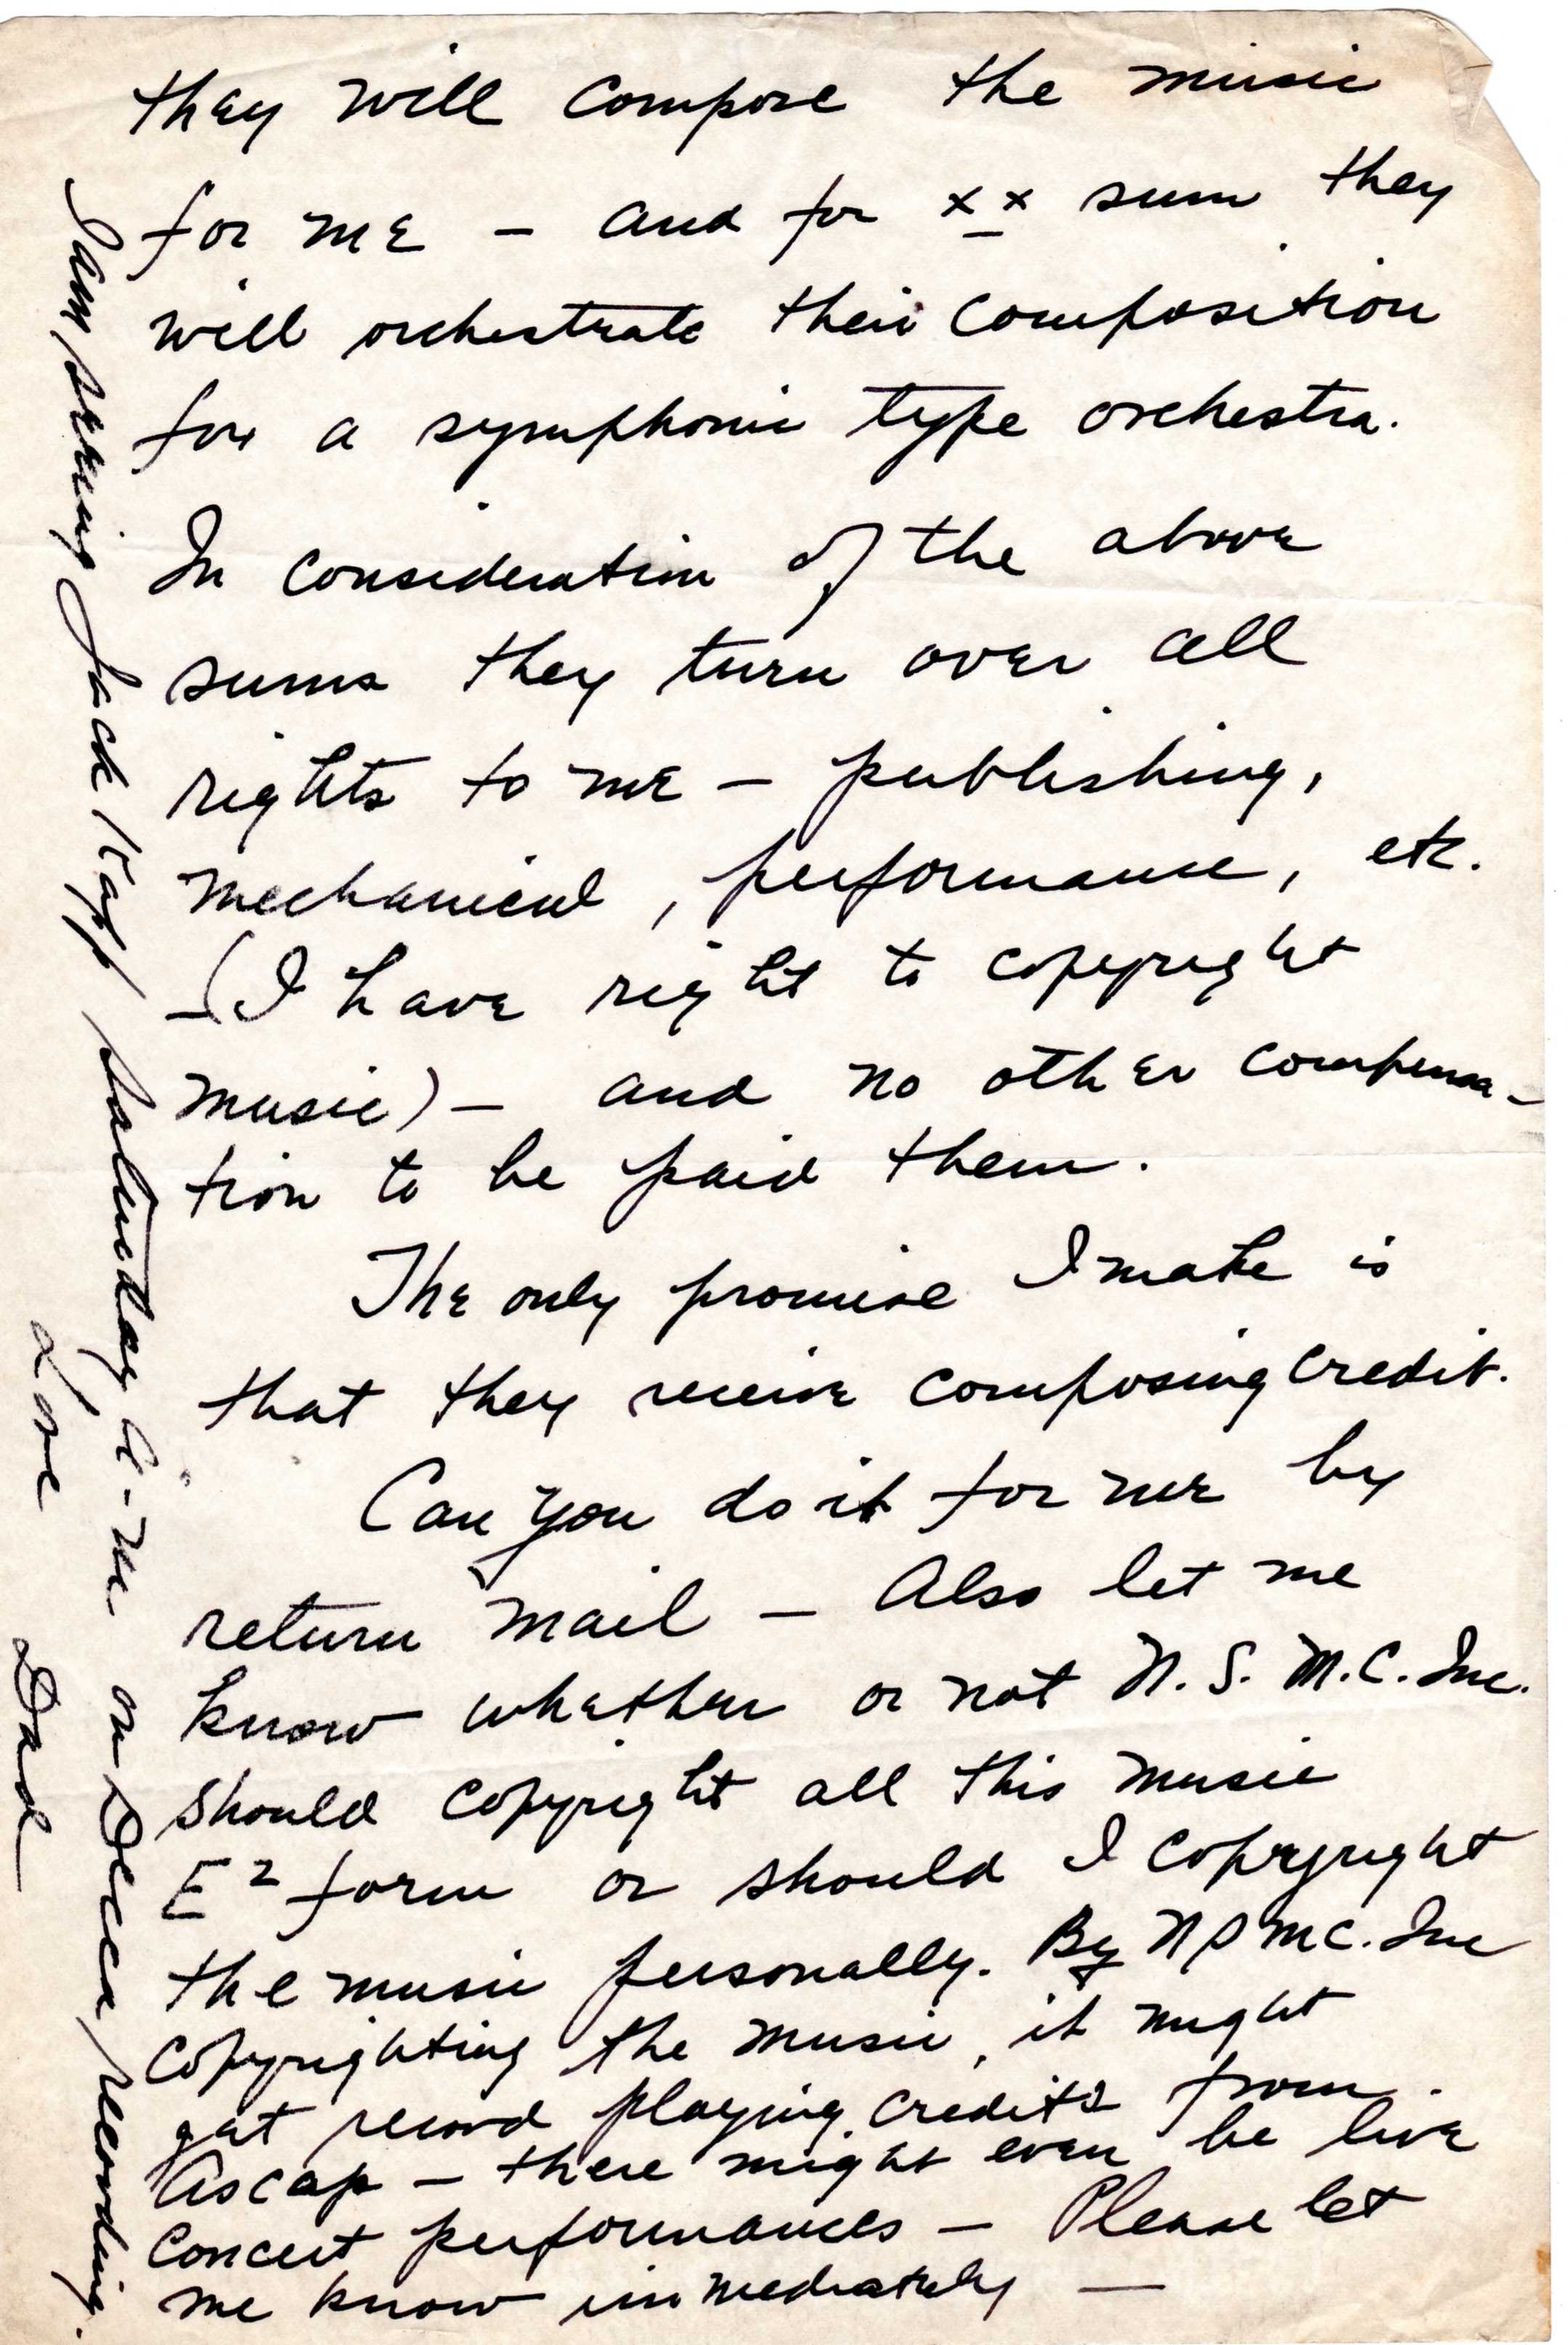 they will compose the music
for me – and for x x sum they
will orchestrate their composition
for a symphonic type orchestra.
In consideration of the above
sums they turn over all
rights to me – publishing,
mechanical, performance, etc.
– (I have right to copyright
music) – and no other compensa-
tion to be paid them.
The only promise I make is
that they receive composing credit.
Can you do it for me by
return mail – Also let me
know whether or not N. S. M. C. Inc.
should copyright all this music
E² form or should I copyright
the music personally. By NSMC. Inc
copyrighting the music, it might
get record playing credits from
Ascap – there might even be live
concert performances – Please let
me know immediately –
I am seeing Jack Kapp Saturday a-m on Decca recording.
Love
Dad